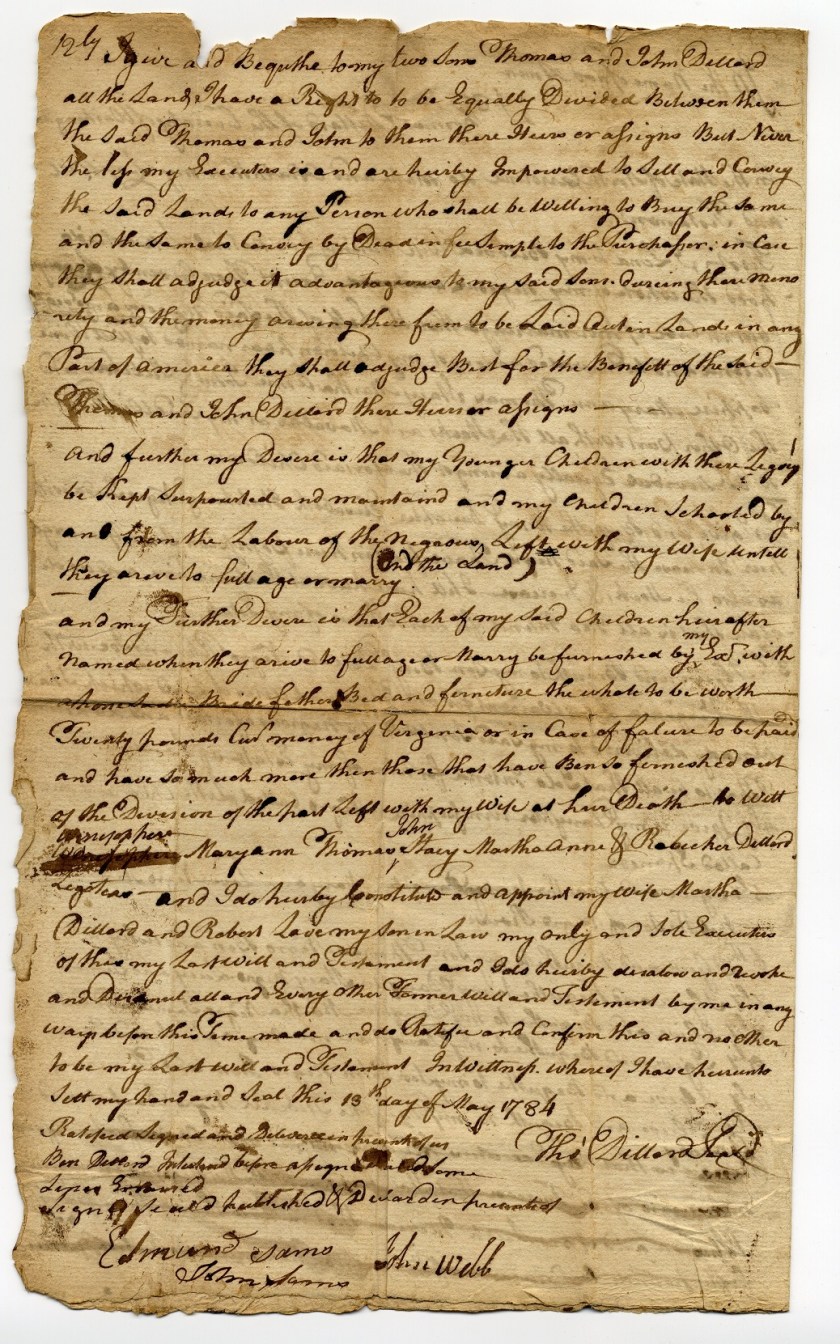 12ly I give and Bequthe to my two Sons Thomas and John Dillard
all the Lands I have a Right to to be Equally Divided Between them
the said Thomas and John to them there Heirs or assigns But Never
the less my Executors is and are heirby Impowered to Sell and Convey
the said Lands to any Person who shall be Willing to Buy the same
and the same to Convey by Dead in fee Simple to the Purchasser: in Case
they shall adjudge it advantageous to my said Sons dureing there meno
rety and the money ariseing there from to be Laid Out in Lands in any
Part of america they shall adjudge Best for the Benefitt of the said —
Thomas and John Dillard there Heirs or assigns —
and further my Desire is that my Younger Children with there Legacy
be Kept Surpourted and maintaind and my Children Schooled by
and from the Labour of the Negroous Left with my Wife untell
(and the Land)
they arive to full age or marry.
and my Further Desire is that Each of my said Children heirafter
my
Named when they arive to full age or Marry be furnished by Exrs. with
a horse Bridle fether Bed and furneture the whole to be worth —
Twenty pounds Curt money of Virginia or in Case of falure to be paid
and have so much more then those that have Ben so furnished out
of the Division of the part Left with my Wife at hur Death — to Witt
John
Maryann Thomas Stacy Martha Anne & Rabecker Dillard
Legotees — and I do hurby Constitute and appoint my Wife Martha —
Dillard and Robert Love my Son in Law my only and Sole Executors
of this my Last Will and Testament and I do heirby disalow and revoke
and Disanul all and Every other Former Will and Testement by me in any
ways befor this Time made and do Ratifie and Confirm this and no other
to be my Last Will and Testament In Wittness whereof I have hereunto
Sett my hand and Seal this 13th day of May 1784
Ratified Signed and Delivered in presents of us
Thos Dillard Seal
Ben Dillard Interlined before assigned and some
Lines Erased
Signd Seald published & Declard in presents of
Edmund Sams
John Webb
John Sams